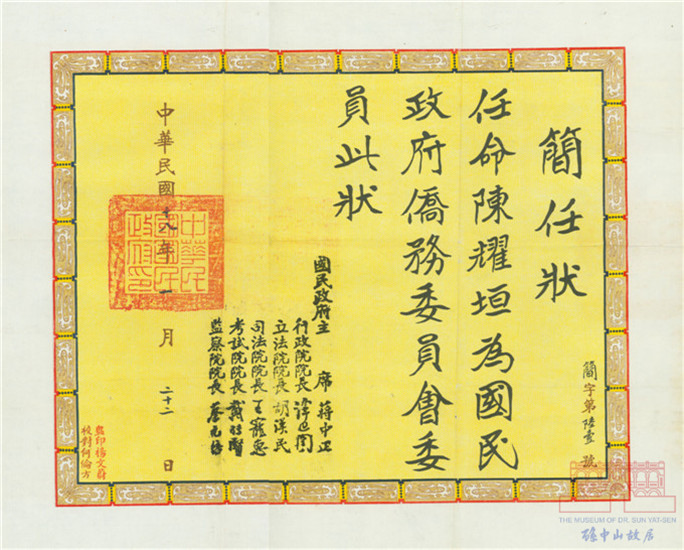 簡任狀
簡字第陸壹號
任命陳耀垣為國民
政府僑務委員會委
員此狀
國民政府主席蔣中正
行政院院長譚延闓
立法院院長胡漢民
司法院院長王寵惠
考試院院長戴傳賢
監察院院長蔡元培
中華民國十八年一月二十二日
中華民國國民政府印
監印楊文蔚
校對何倫方
THE MUSEUM OF DR. SUN YAT-SEN
孫中山故居